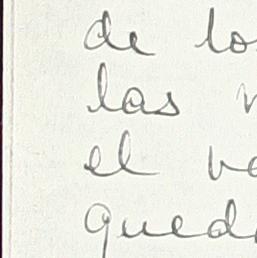 de lo
las
el
qued